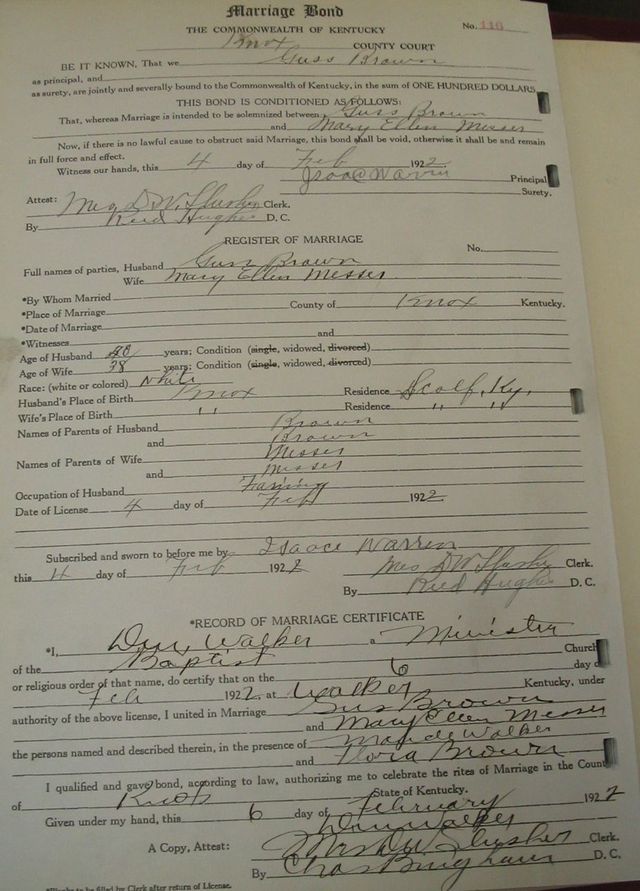 Marriage Bond
THE COMMONWEALTH OF KENTUCKY
No. 116
Knox COUNTY COURT
BE IT KNOWN, That we Guss Brown
as principal, and
as surety, are jointly and severally bound to the Commonwealth of Kentucky, in the sum of ONE HUNDRED DOLLARS
THIS BOND IS CONDITIONED AS FOLLOWS:
That, whereas Marriage is intended to be solemnized between Guss Brown
and Mary Ellen Messer
Now, if there is no lawful cause to obstruct said Marriage, this bond shall be void, otherwise it shall be and remain
in full force and effect.
Witness our hands, this 4 day of Feb 1922.
Isaac Warren Principal
Surety.
Attest: Mrs D. W. Slusher Clerk.
By Ried Hughes D. C.
REGISTER OF MARRIAGE
No.
Full names of parties, Husband Guss Brown
Wife Mary Ellen Messer
*By Whom Married
*Place of Marriage County of Knox Kentucky.
*Date of Marriage
*Witnesses and
Age of Husband years; Condition (single, widowed, divorced)
Age of Wife 38 years; Condition (single, widowed, divorced)
Race: (white or colored) White
Husband's Place of Birth Knox Residence Scalf, Ky,
Wife's Place of Birth " Residence " "
Names of Parents of Husband Brown
and Brown
Names of Parents of Wife Messer
and Messer
Occupation of Husband Faming
Date of License 4 day of Feb 1922
Subscribed and sworn to before me by Isaace Warren
this 4 day of Feb 1922 Mrs D W Slusher Clerk.
By Ried Hughes D. C.
*RECORD OF MARRIAGE CERTIFICATE
*I, Dan Walker a Minister
of the Baptist Church
or religious order of that name, do certify that on the 6 day of
Feb 1922. at Walker Kentucky, under
authority of the above license, I united in Marriage Gus Brown
and Mary Ellen Messer
the persons named and described therein, in the presence of Maude Walker
and Flora Brown
I qualified and gave bond, according to law, authorizing me to celebrate the rites of Marriage in the County
of Knox State of Kentucky.
Given under my hand, this 6 day of February 1922
Dan Walker
A Copy, Attest: Mrs D W Slusher Clerk.
By Chas Bingham D. C.
filed by Clerk after return of License.